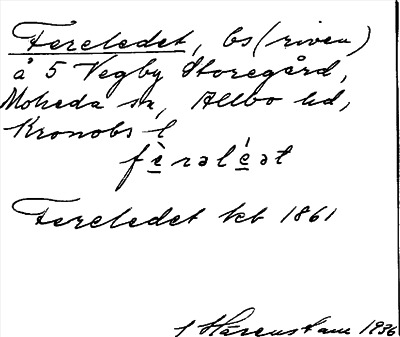 Fereledet, bs (riven)
å 5 Vegby Storegård,
Moheda sn, Allbo hd,
Kronobs l
fìrəléət
Fereledet kb 1861
1936